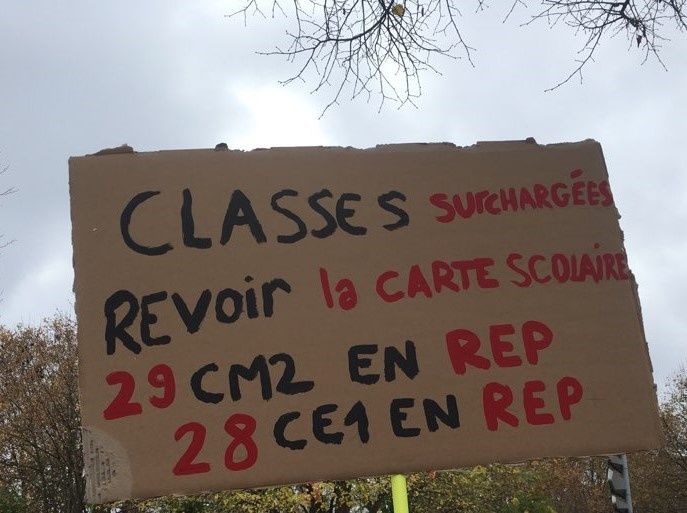 CLASSES SURCHARGÉES
REVOIR la CARTE SCOLAIRE
29 CM2 EN REP
28 CE1 EN REP